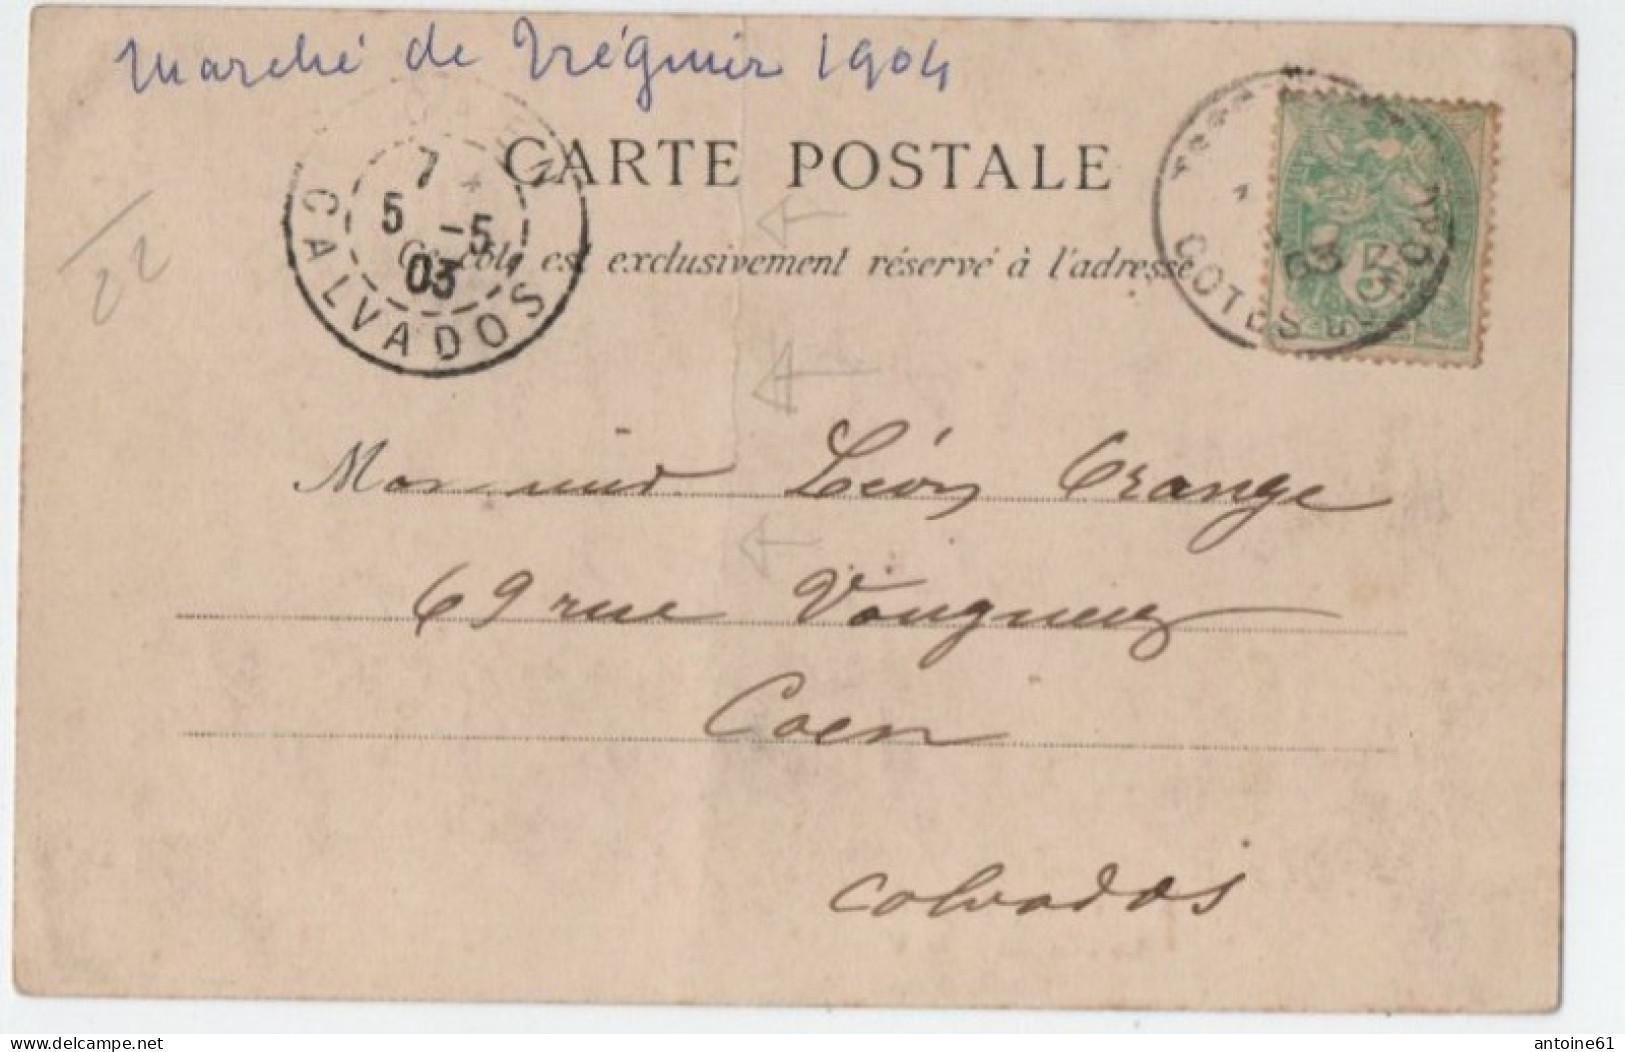 Marché de Tréguier 1904
CARTE POSTALE
Ce côté est exclusivement réservé à l'adresse
CAEN
7
5 -5
03
CALVADOS
COTES
03
5
22
Monsieur Léon Orange
69 rue Vaugueux
Caen
Calvados
antoine61